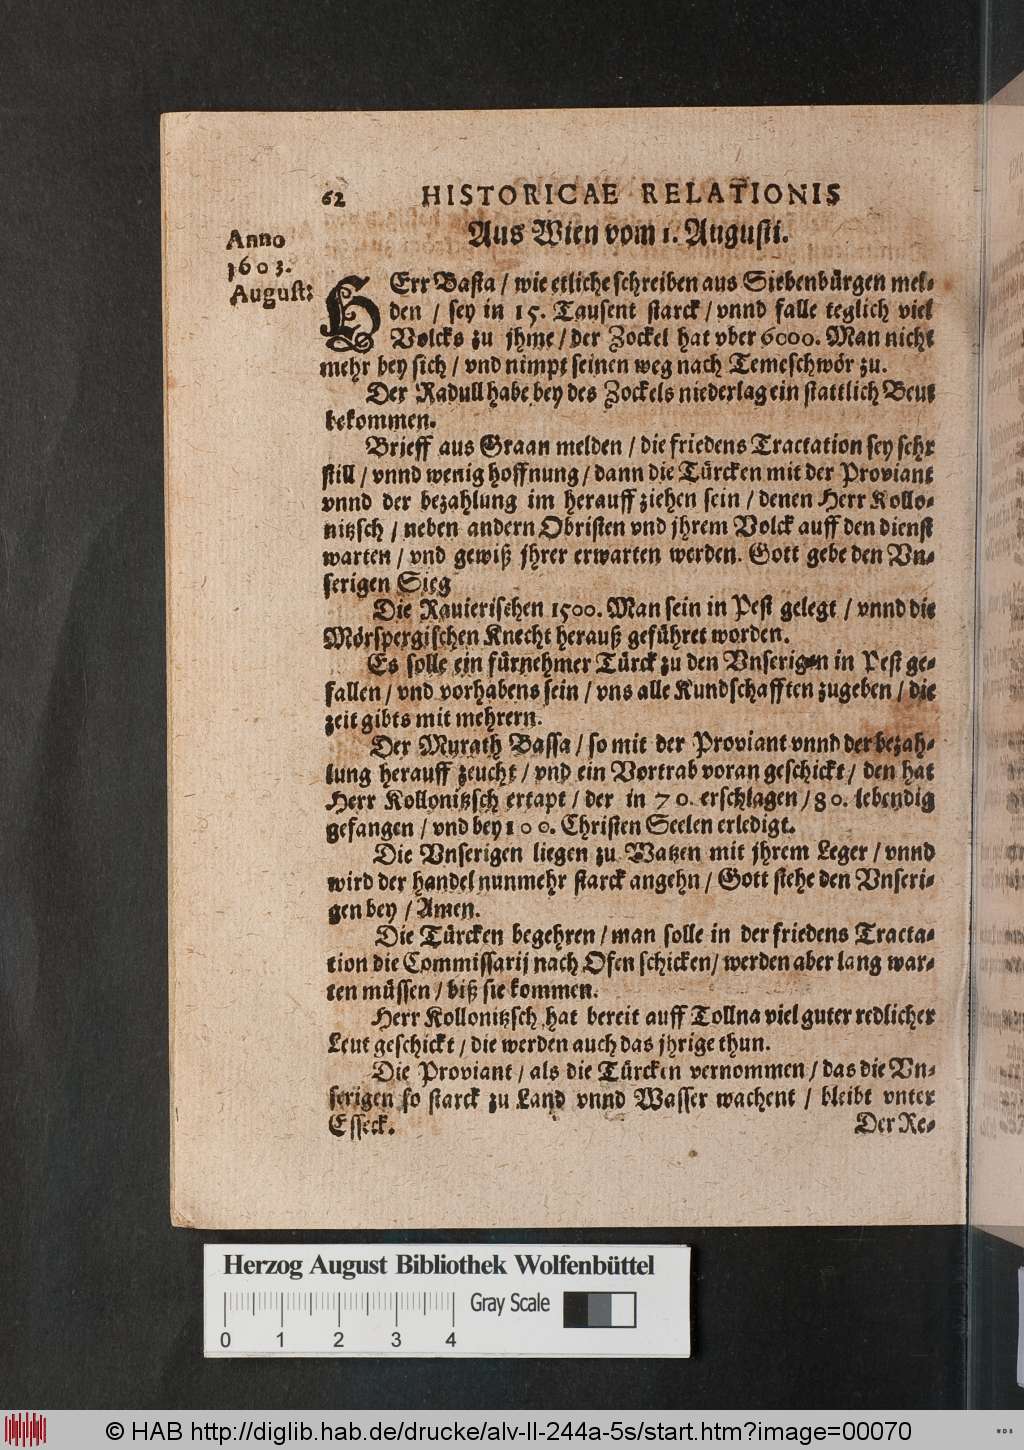 62 HISTORICAE RELATIONIS
Anno
1603.
August:
Aus Wien vom 1. Augusti.
HErr Basta / wie etliche schreiben aus Siebenbürgen mel-
den / sey in 15. Tausent starck / vnnd falle teglich viel
Volcks zu jhme / der Zockel hat vber 6000. Man nicht
mehr bey sich / vnd nimpt seinen weg nach Temeschwör zu.
Der Radull habe bey des Zockels niederlag ein stattlich Beut
bekommen.
Brieff aus Graan melden / die friedens Tractation sey sehr
still / vnnd wenig hoffnung / dann die Türcken mit der Proviant
vnnd der bezahlung im herauff ziehen sein / denen Herr Kollo-
nitzsch / neben andern Obristen vnd jhrem Volck auff den dienst
warten / vnd gewiß jhrer erwarten werden. Gott gebe den Vn-
serigen Sieg
Die Rauierischen 1500. Man sein in Pest gelegt / vnnd die
Mörspergischen Knecht herauß geführet worden.
Es solle ein fürnehmer Türck zu den Vnserigen in Pest ge-
fallen / vnd vorhabens sein / vns alle Kundschafften zugeben / die
zeit gibts mit mehrern.
Der Murath Bassa / so mit der Proviant vnnd der bezah-
lung herauff zeucht / vnd ein Vortrab voran geschickt / den hat
Herr Kollonitzsch ertapt / der in 70. erschlagen / 80. lebendig
gefangen / vnd bey 100. Christen Seelen erledigt.
Die Vnserigen liegen zu Watzen mit jhrem Leger / vnnd
wird der handel nunmehr starck angehn / Gott stehe den Vnseri-
gen bey / Amen.
Die Türcken begehren / man solle in der friedens Tracta-
tion die Commissarij nach Ofen schicken / werden aber lang war-
ten müssen / biß sie kommen.
Herr Kollonitzsch hat bereit auff Tollna viel guter redlicher
Leut geschickt / die werden auch das jhrige thun.
Die Proviant / als die Türcken vernommen / das die Vn-
serigen so starck zu Land vnnd Wasser wachent / bleibt vnter
Esseck. Der Re-
Herzog August Bibliothek Wolfenbüttel
Gray Scale
0 1 2 3 4
© HAB http://diglib.hab.de/drucke/alv-ll-244a-5s/start.htm?image=00070